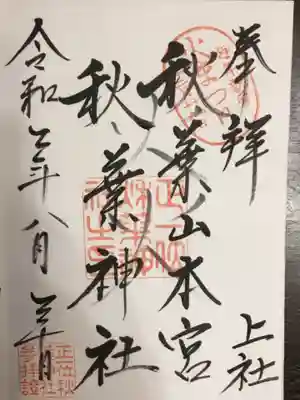 奉拝 上社
秋葉山本宮
秋葉神社
令和二年八月三十日